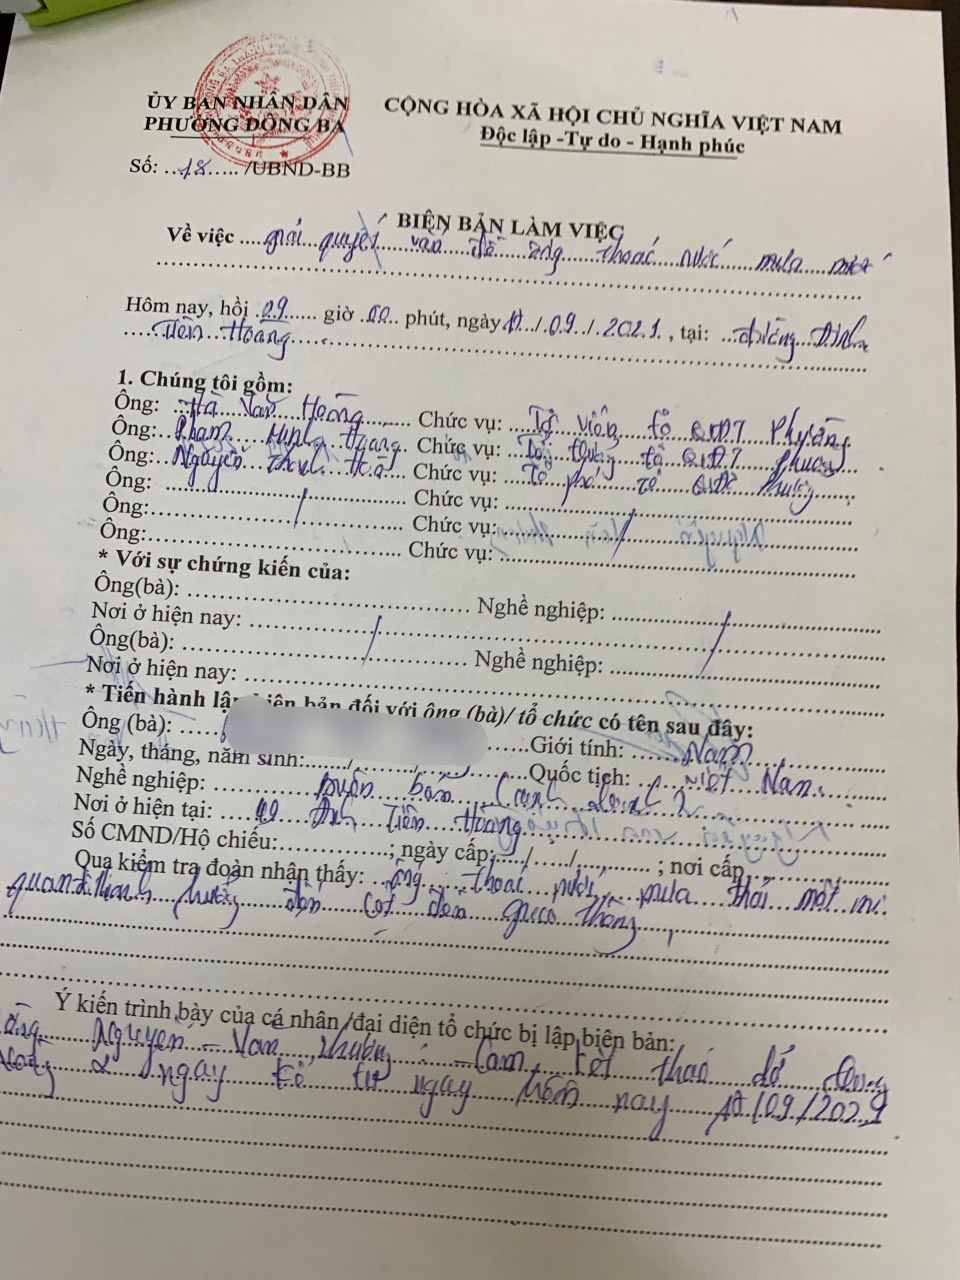 ỦY BAN NHÂN DÂN
PHƯỜNG ĐÔNG BA
CỘNG HÒA XÃ HỘI CHỦ NGHĨA VIỆT NAM
Độc lập -Tự do - Hạnh phúc
Số: ..18..... /UBND-BB
BIÊN BẢN LÀM VIỆC
Về việc ....giải quyết vấn đề ống thoát nước mưa
Hôm nay, hồi .09...... giờ .00.. phút, ngày 17../.09../.2021., tại: ...đường Đinh
Tiên Hoàng
1. Chúng tôi gồm:
Ông: ...Hà Văn Hoàng........ Chức vụ: ...Tổ viên tổ QLĐT Phường
Ông:..Phạm Minh Hoàng. Chức vụ: ..Tổ trưởng tổ QLĐT Phường
Ông:..Nguyễn Thanh Chức vụ: ..Tổ phó tổ QLĐT Phường
Ông: .............................. Chức vụ: ..............................
Ông:.............................. Chức vụ: ..............................
Ông:.............................. Chức vụ: ..............................
* Với sự chứng kiến của:
Ông(bà): .............................. Nghề nghiệp: ..............................
Nơi ở hiện nay: ............................................................
Ông(bà): .............................. Nghề nghiệp: ..............................
Nơi ở hiện nay: ............................................................
* Tiến hành lập biên bản đối với ông (bà)/ tổ chức có tên sau đây:
Ông(bà): ..... ......Giới tính: ....Nam
Ngày, tháng, năm sinh:....../......./....... Quốc tịch: ..Việt Nam
Nghề nghiệp: buôn bán
Nơi ở hiện tại: 49 Đinh Tiên Hoàng
Số CMND/Hộ chiếu:..............; ngày cấp:...../...../......... ; nơi cấp..............
Qua kiểm tra đoàn nhận thấy: ..ống thoát nước mưa thải mất mĩ
quan đi thành phường đến cột đèn giao thông
Ý kiến trình bày của cá nhân /đại diện tổ chức bị lập biên bản:
Ông Nguyễn Văn cam kết tháo dỡ trong
vòng 2 ngày kể từ ngày hôm nay 17/09/2021